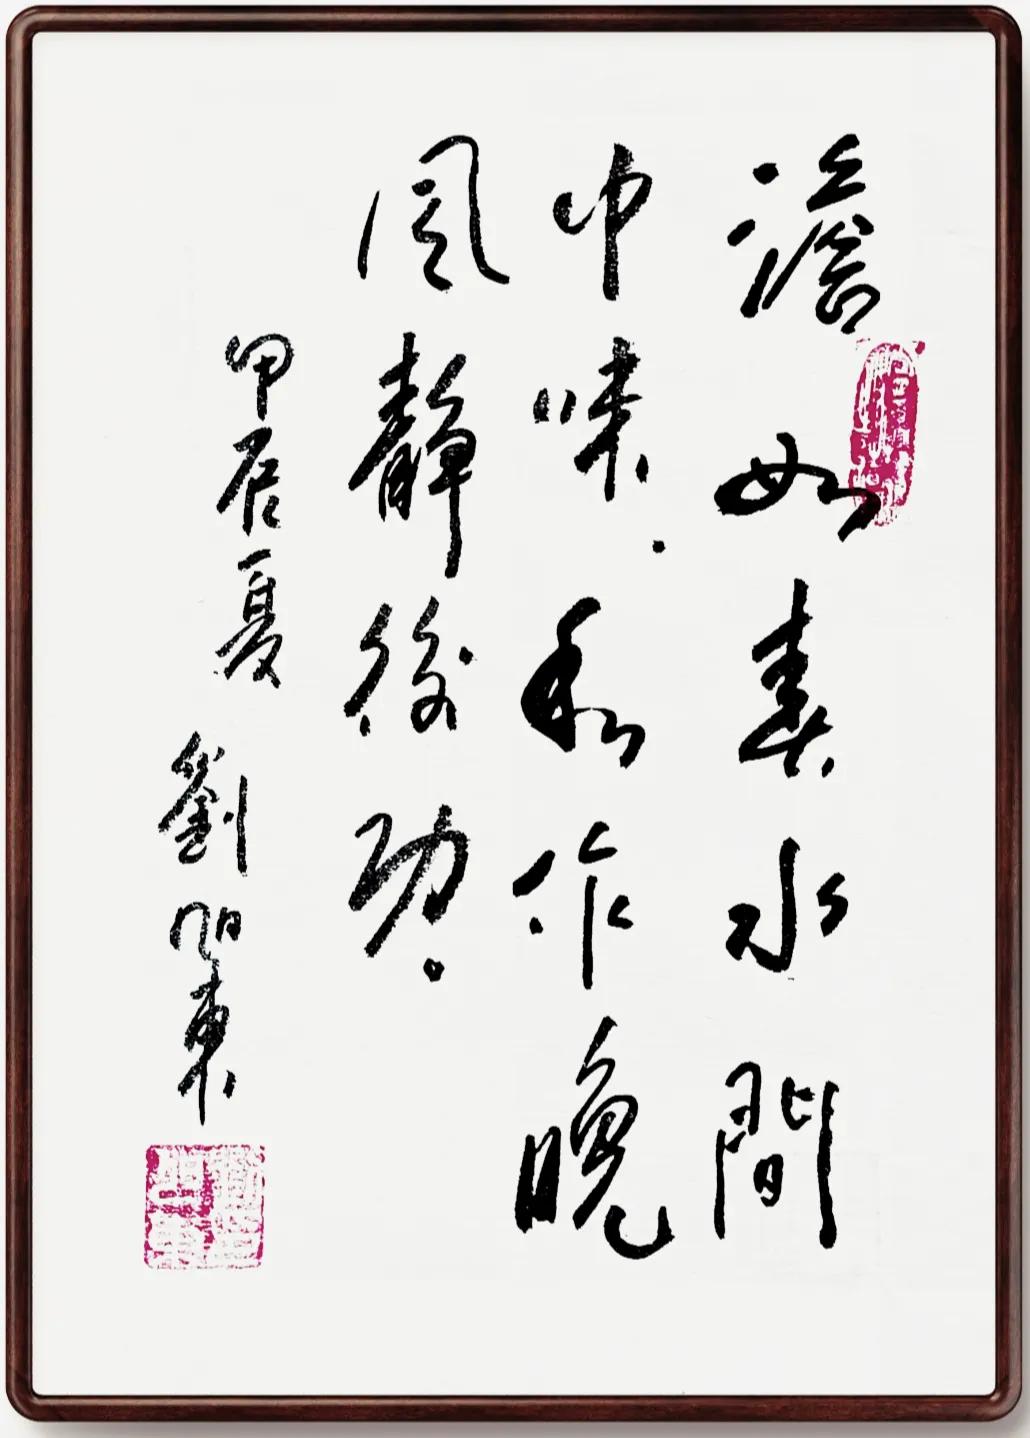 澹如春水間
中味和作晚
風靜後功
甲辰夏 劉旭東